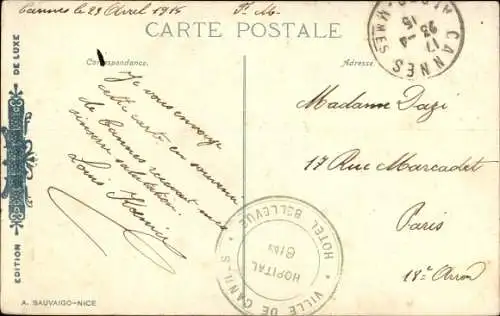 Cannes le 23 Avril 1915
F. M.
CARTE POSTALE
Correspondance.
Adresse.
Je vous envoye
cette carte en souvenir
de Cannes recevant mes
sincère salutation.
Louis
Madame Dazi
17 Rue Marcadet
Paris
18e Arron
CANNES
17 23 -4 15
* VILLE DE CANNES *
HOTEL BELLEVUE
HOPITAL
6 bis
EDITION DE LUXE
A. SAUVAIGO-NICE